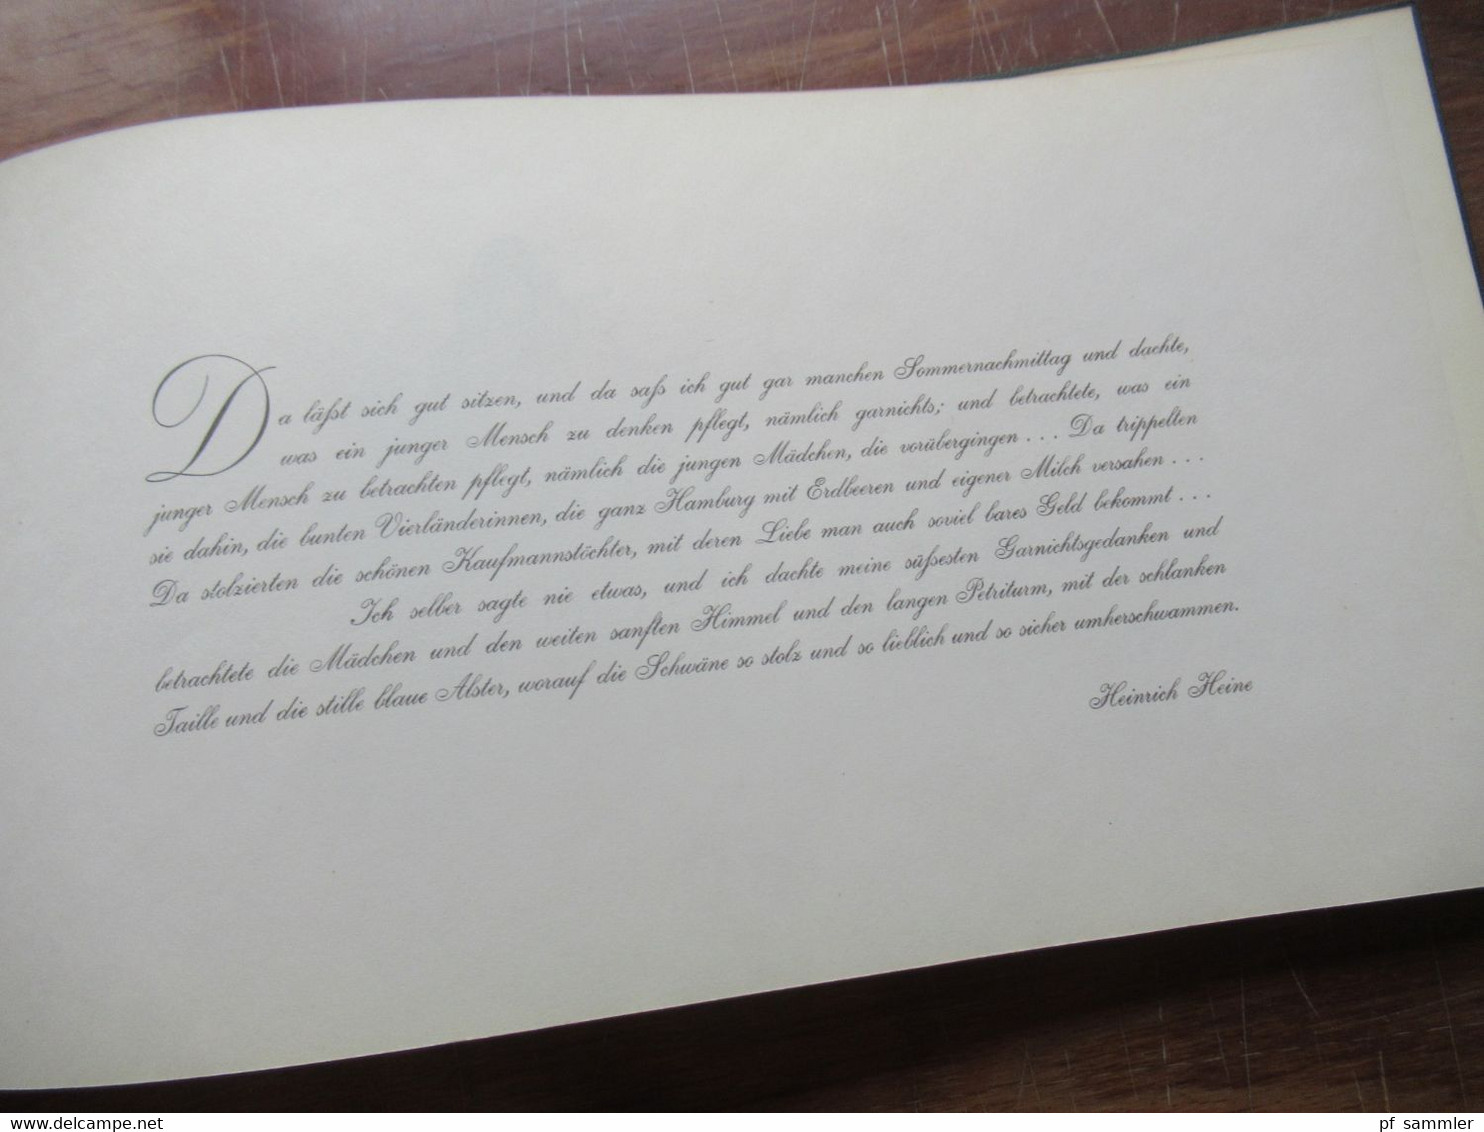 Da läßt sich gut sitzen, und da saß ich gut gar manchen Sommernachmittag und dachte,
was ein junger Mensch zu denken pflegt, nämlich garnichts; und betrachtete, was ein
junger Mensch zu betrachten pflegt, nämlich die jungen Mädchen, die vorübergingen ... Da trippelten
sie dahin, die bunten Vierländerinnen, die ganz Hamburg mit Erdbeeren und eigener Milch versahen ...
Da stolzierten die schönen Kaufmannstöchter, mit deren Liebe man auch soviel bares Geld bekommt ...
Ich selber sagte nie etwas, und ich dachte meine süßesten Garnichtsgedanken und
betrachtete die Mädchen und den weiten sanften Himmel und den langen Petriturm, mit der schlanken
Taille und die stille blaue Alster, worauf die Schwäne so stolz und so lieblich und so sicher umherschwammen.
Heinrich Heine
www.delcampe.net
pf sammler